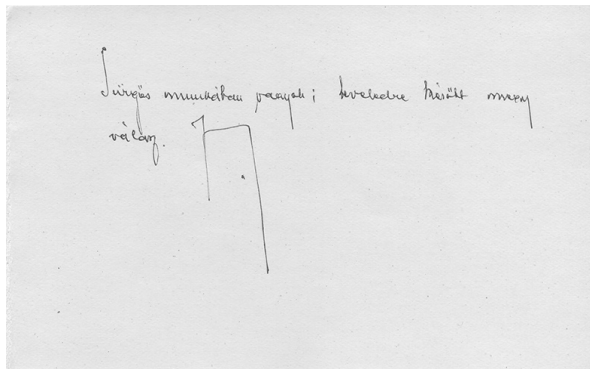 Sürgős munkában vagyok; leveledre később megy
válasz.